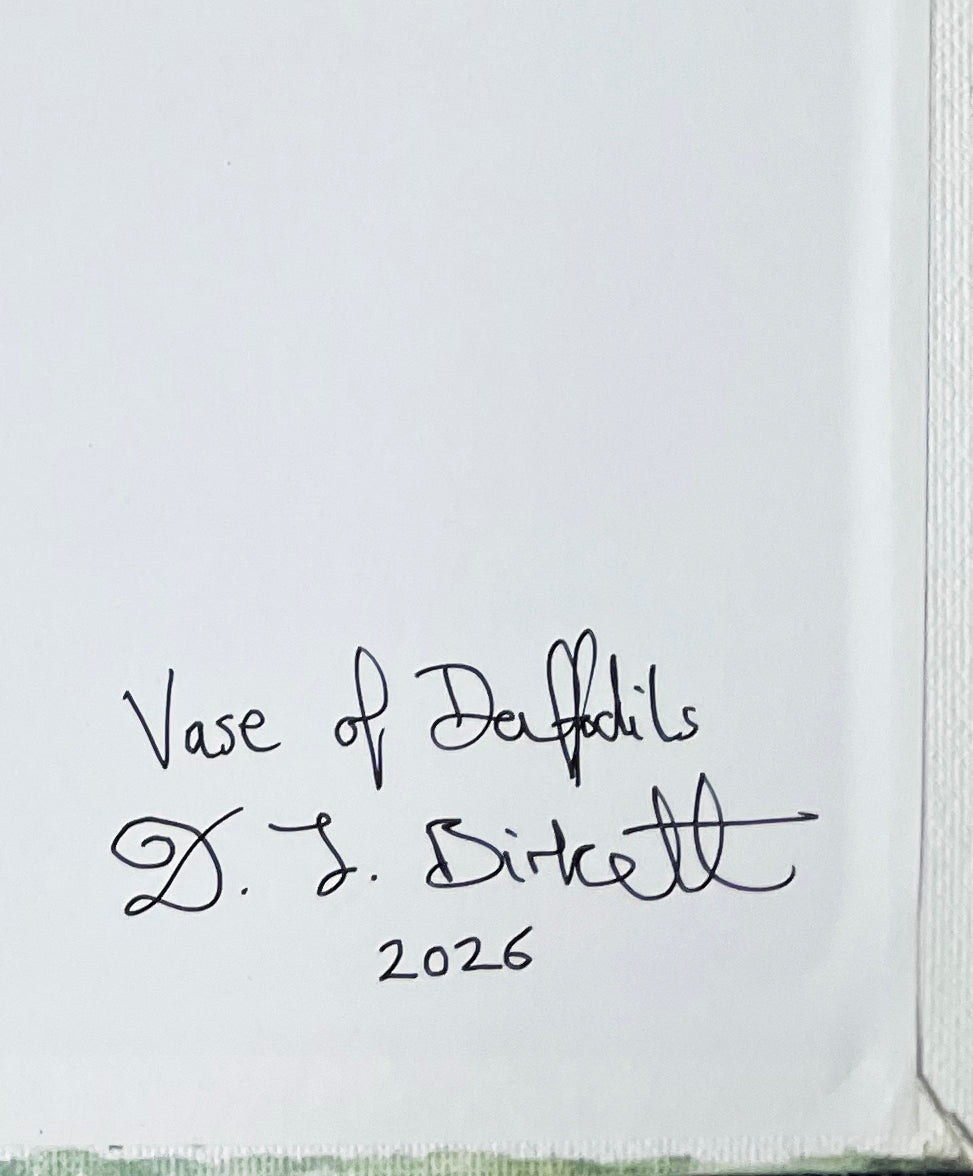 Vase of Daffodils
D. J. Birkett
2026